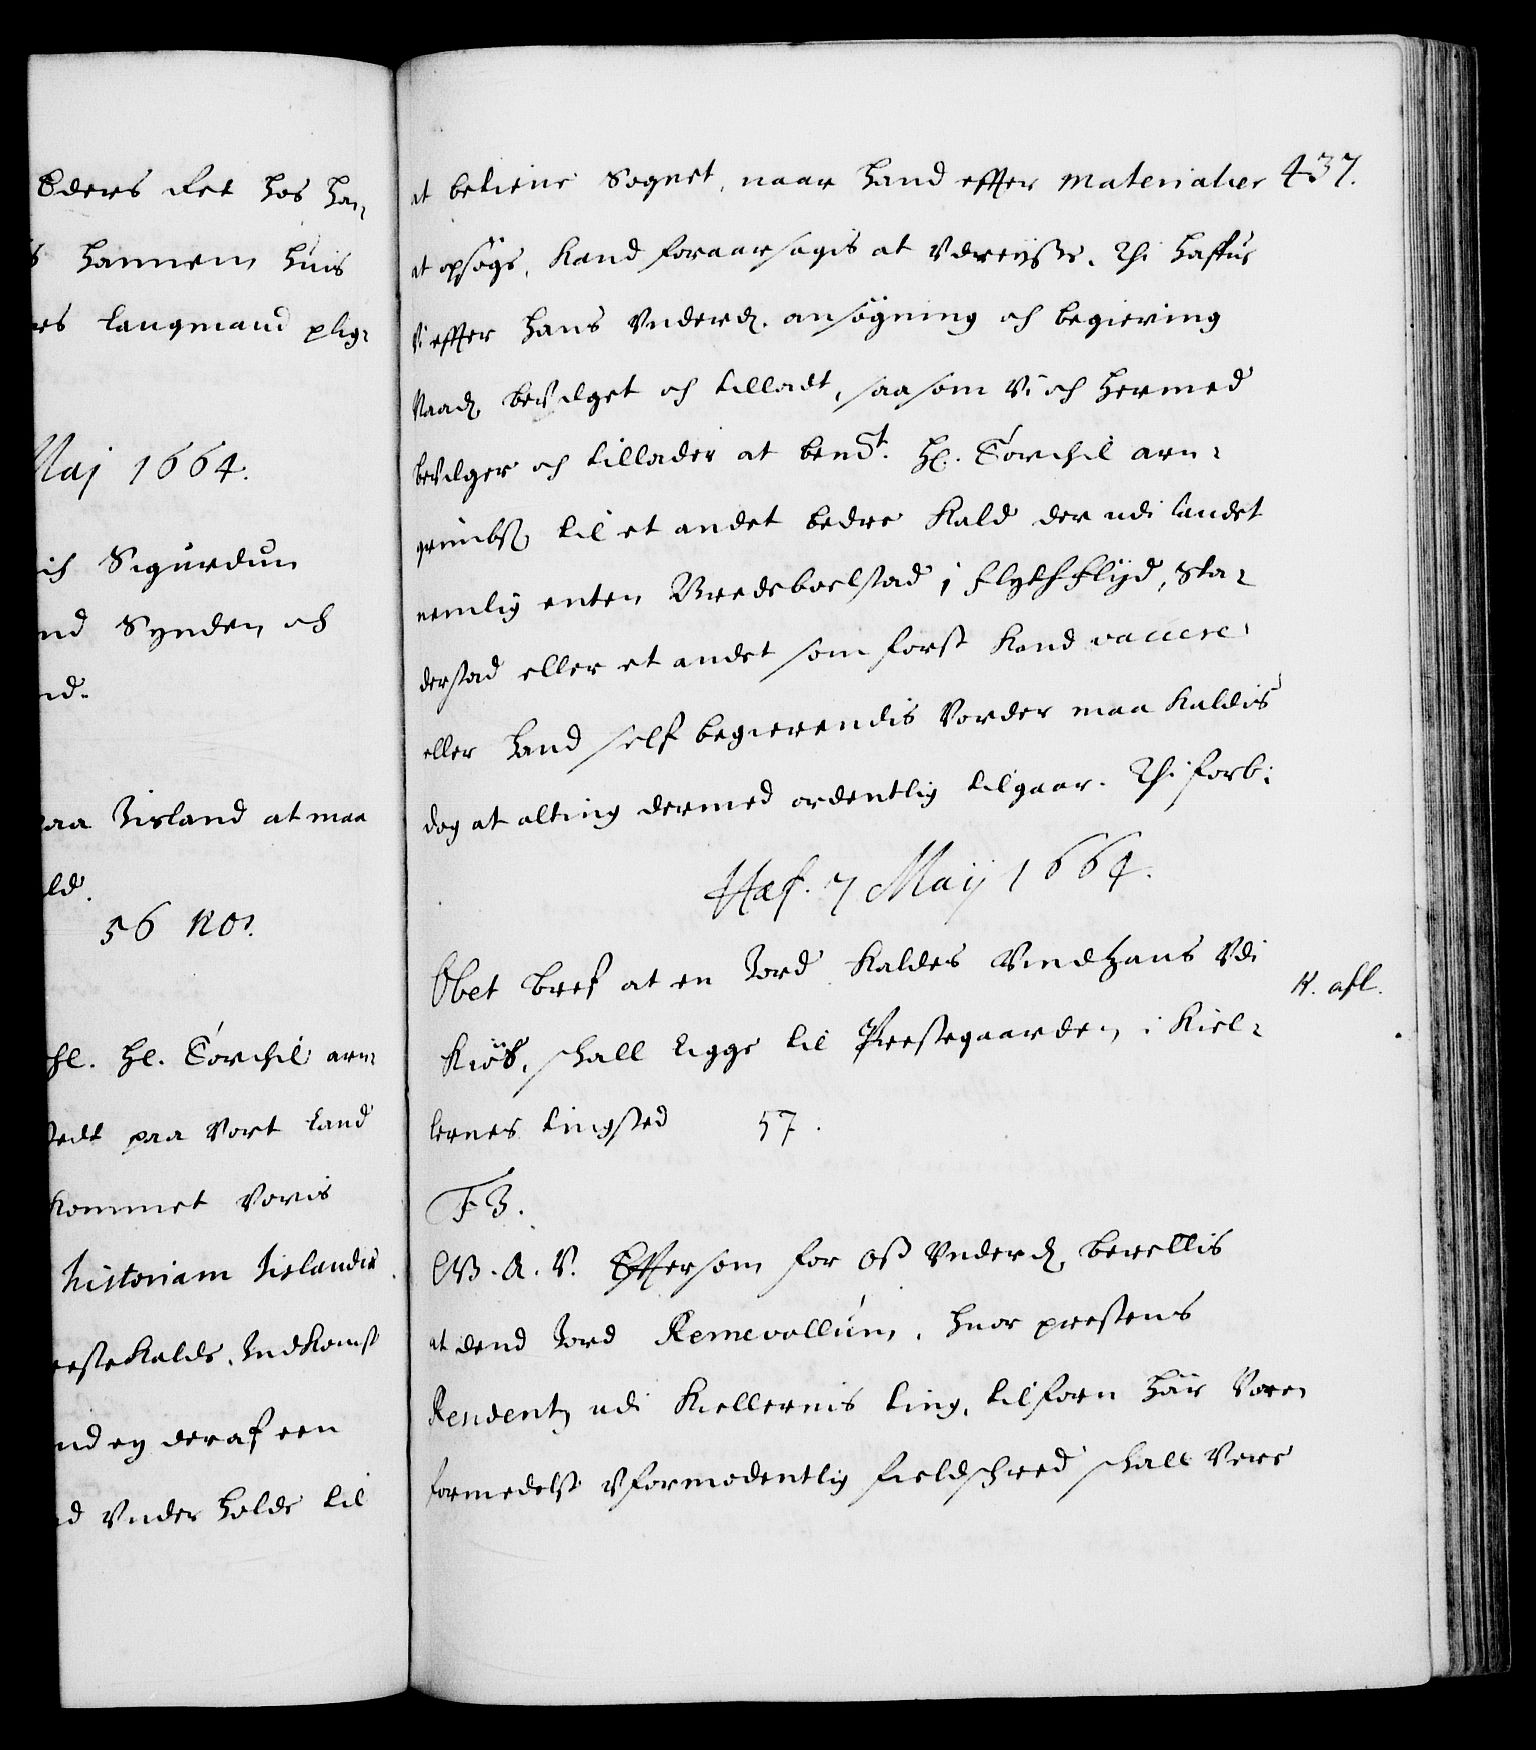 Eders det hos han¬
s hannem huis
res laugmand plig¬
Maj 1664.
ich Sigurdun
nd Synden och
nd.
paa Iisland at maa
ld.
56 No.
hl. Hl. Torchil arn¬
tedt paa Vort Land
kommet Voris
historiam Islandiæ
restekalds Indkomst
nd ey deraf een
d Vnder holde til
at betiene Sognet, naar hand effter materialier 437.
at opsøge, kand foraarsagis at Vdreysse. Thi haffue
Vi effter hans Vnderd. ansøgning och begiering
Naad. beVilget och tilladt, saasom Vi och hermed
beVilger och tillader at bemt. Hl. Torchil arn¬
grimbs. til et andet bedre Kald der udi Landet
nemlig enten Bredeboelstad i Flythsliid, Sta¬
derstad eller et andet som først kand vacere
eller hand self begierendis Vorder maa kaldis
dog at alting dermed ordentlig tilgaar. Thi forb:
Haf. 7 Maij 1664.
Obet bref at en Jord kaldes Vindhaus Vdi
K. afl.
Kiøs, schall ligge til Prestegaarden i Kiel¬
lernes tingsted 57.
F3.
G. A. V. Effersom for oss Vnderd. berettis
at dend Jord Remevollum, huor prestens
Residentz udi Kiellernis ting, tilforn haff Voren
formedelst Vformodentlig fieldschred schall Vere